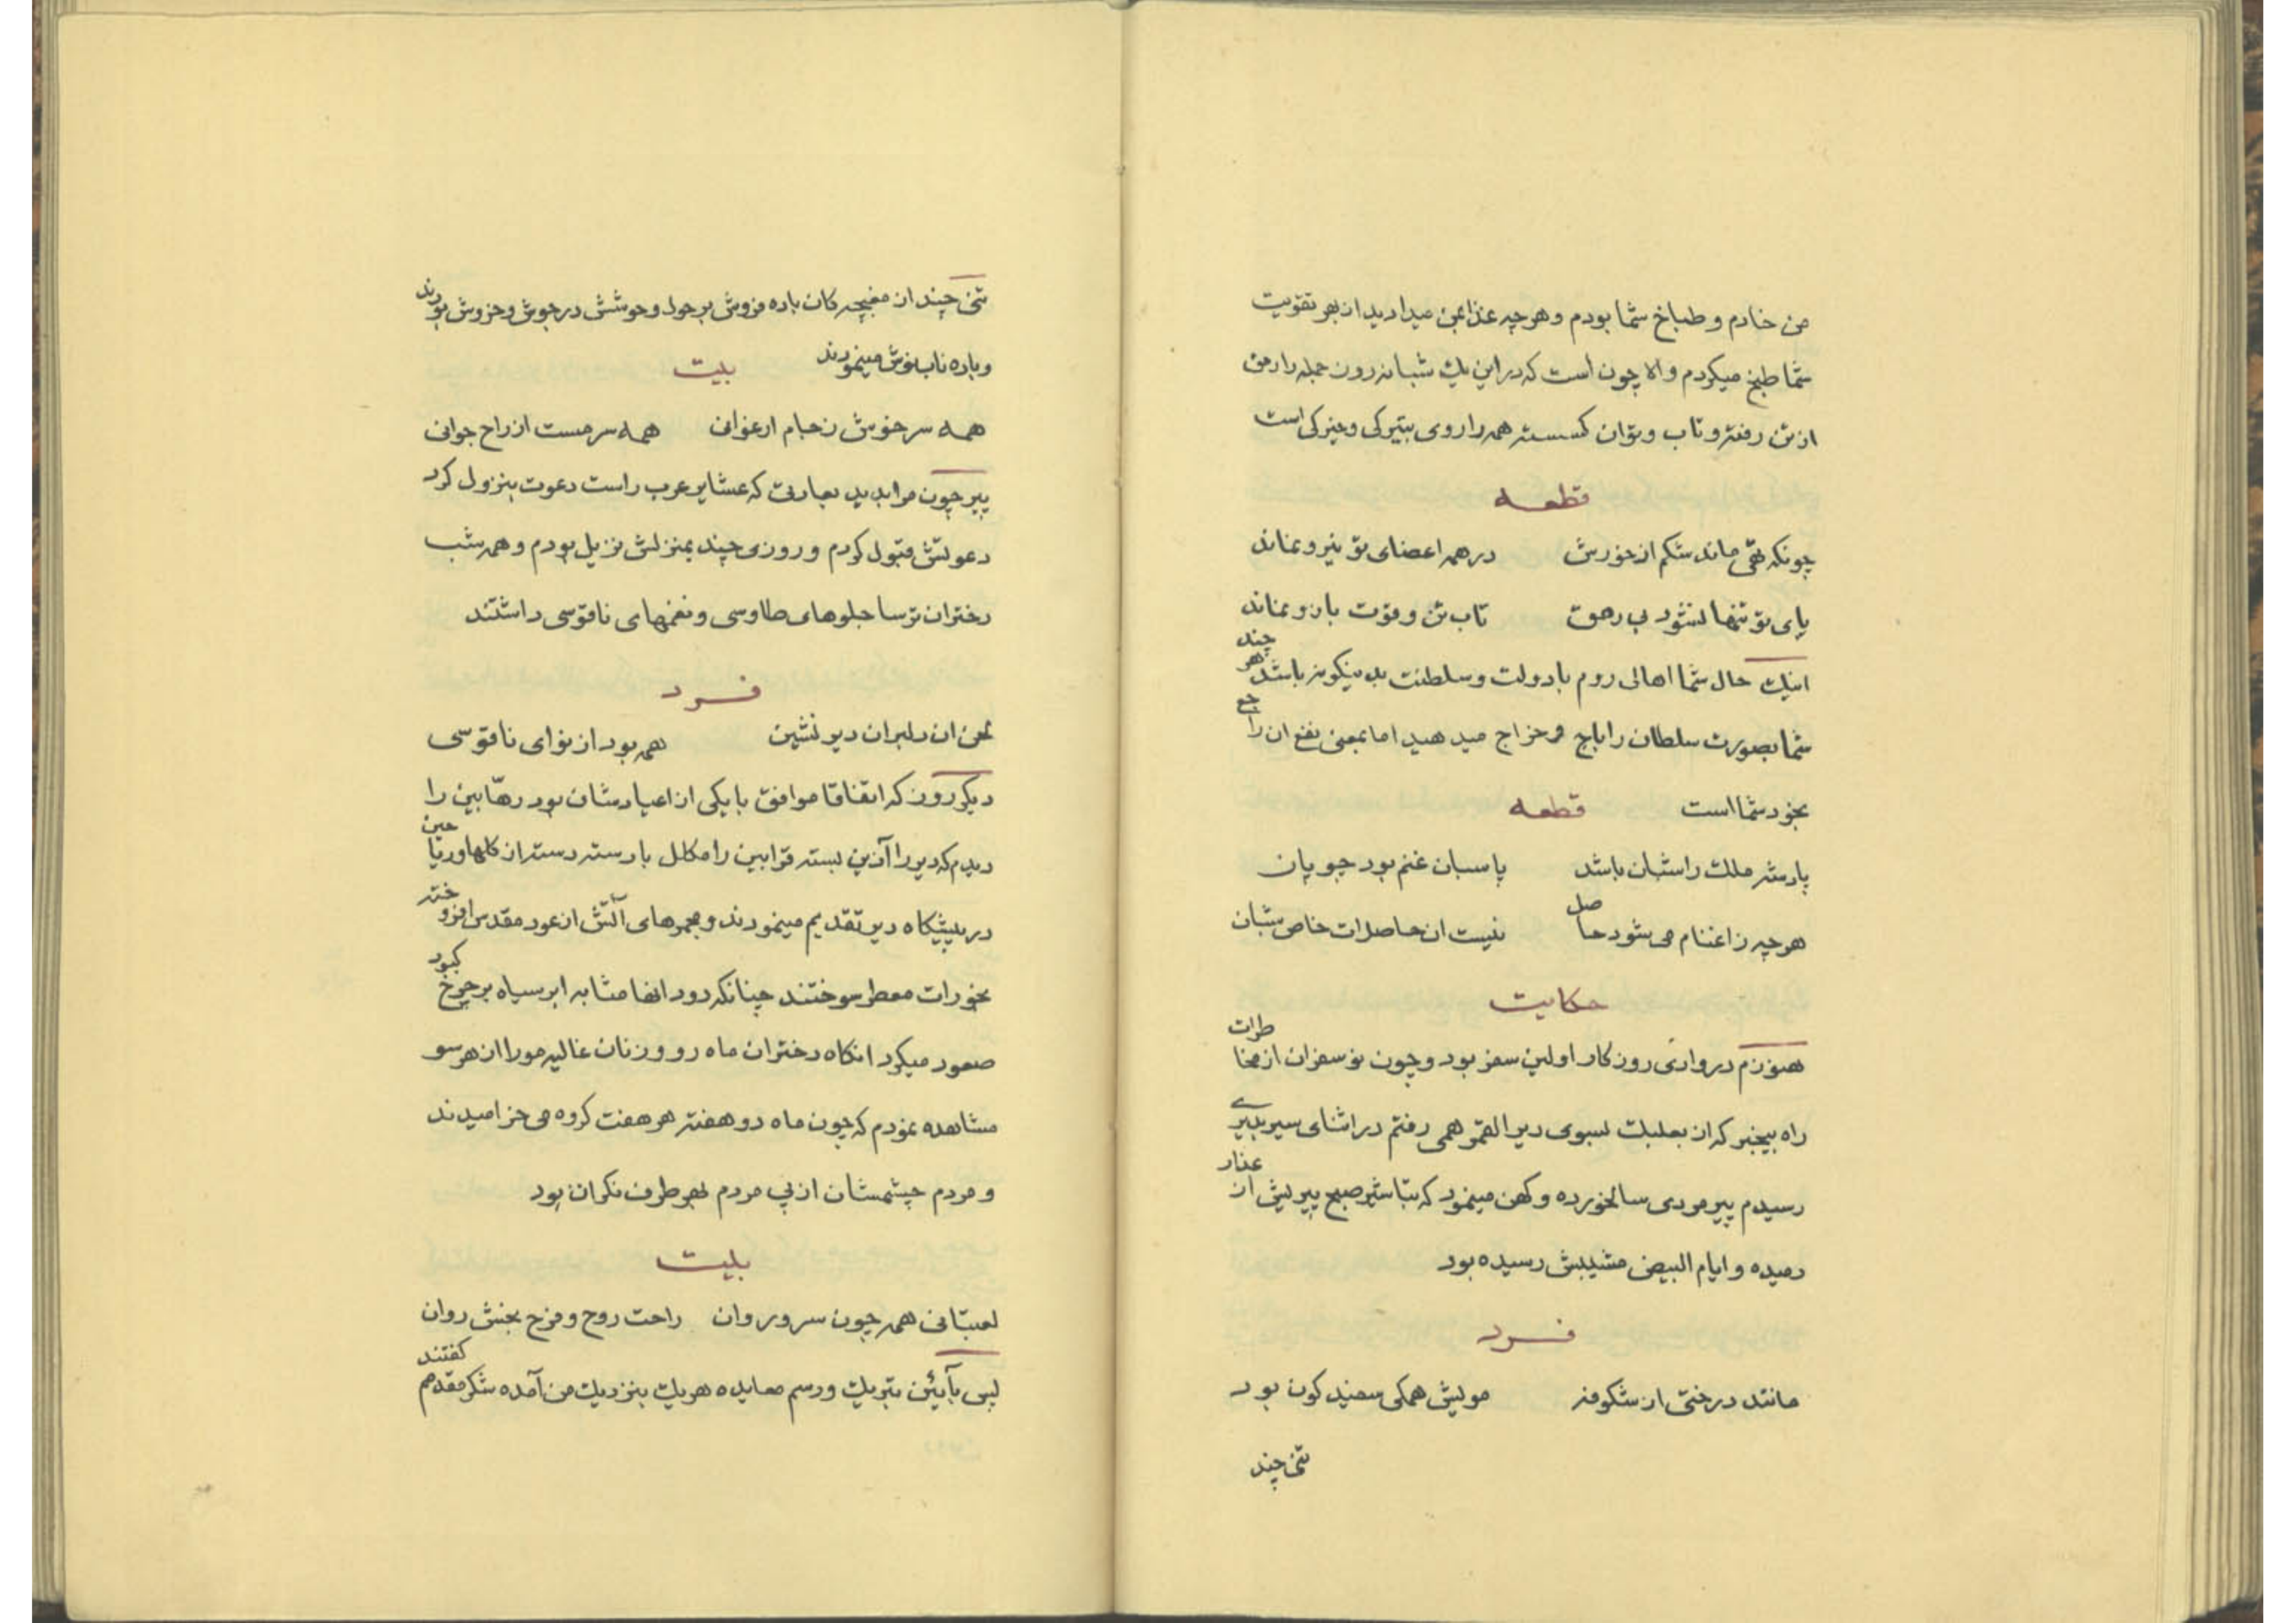 من خادم و طباخ شما بودم و هرچه غذا بمن میدادید از بهر تقویت
شما طبخ میکردم والا چون است که در این یك شبانه روز جمله را رمق
از تن رفته و تاب و توان کسسته همه را روی بتیرکی و خیرکی است
قطعه
چونکه تهی ماند شکم از خورش در همه اعضای تو نیرو نماند
پای تو تنها نشود بی رمق تاب تن و قوت بازو نماند
اینك حال شما اهالی روم با دولت و سلطنت بدینکونه باشد هر چند
شما بصورت سلطان را باج و خراج میدهید اما بمعنی نفع ان راجع
بخود شما است قطعه
پادشه ملك را شبان باشد پاسبان غنم بود چوپان
هرچه ز اغنام می شود حاصل نیست ان حاصلات خاص شبان
حکایت
هنوزم در وادی روزکار اولین سفر بود و چون نو سفران از مخاطرات
راه بیخبر که از بعلبك بسوی دیر القمر همی رفتم در اثنای سیر بدیری
رسیدم پیر مردی سالخورده و کهن مینمود که تباشیر صبح پیریش از عذار
دمیده و ایام البیض مشیبش رسیده بود
فرد
مانند درختی از شکوفه مویش همکی سفید کون بود
تنی چند
تنی چند از مغبچه کان باده فروش بر حول و حوشش در جوش و خروش بودند
و باده ناب نوش مینمودند بیت
همه سر خوش ز جام ارغوانی همه سرمست از راح جوانی
پیر چون مرا بدید بعادتی که عشایر عرب راست دعوت بنزول کرد
دعوتش قبول کردم و روزی چند بمنزلش نزیل بودم و همه شب
دختران ترسا جلوهای طاوسی و نغمهای ناقوسی داشتند
فرد
لحن ان دلبران دیر نشین همه بود از نوای ناقوسی
دیکر روز که اتفاقا موافق با یکی از اعیادشان بود رهّابین را
دیدم که دیر را آذین بسته قرابین را مکلل با دسته دسته از کلها و ریاحین
در پیشکاه دیر تقدیم مینمودند و مجمرهای آتش از عود مقدس افروخته
بخورات معطر سوختند چنانکه دود انها مثابه ابر سیاه بر چرخ کبود
صعود میکرد انکاه دختران ماه رو و زنان غالیه مو را از هر سو
مشاهده نمودم که چون ماه دو هفته هر هفت کرده می خرامیدند
و مردم چشمشان از پی مردم بهر طرف نکران بود
بیت
لعبتانی همه چون سرو روان راحت روح و فرح بخش روان
پس بآیئن تبریك و رسم معایده هر یك بنزدیك من آمده شکر مقدمم کفتند